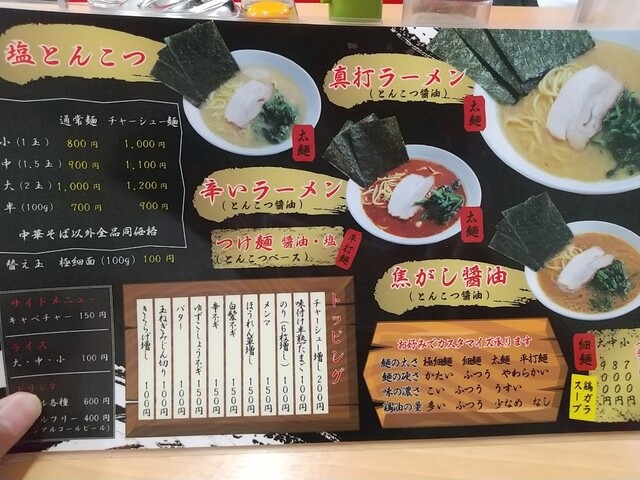 塩とんこつ
通常麺 チャーシュー麺
小(1玉) 800円 1,000円
中(1.5玉) 900円 1,100円
大(2玉) 1,000円 1,200円
半(100g) 700円 900円
中華そば以外全品同価格
替え玉 極細麺(100g) 100円
サイドメニュー
キャベチャー 150円
ライス
大・中・小 100円
ル各種 600円
ルフリー 400円
アルコールビール)
太麺
真打ラーメン
(とんこつ醤油)
太麺
辛いラーメン
(とんこつ醤油)
太麺
つけ麺 醤油・塩
(とんこつベース)
平打麺
焦がし醤油
(とんこつ醤油)
細麺
トッピング
チャーシュー増し 200円
味付け半熟たまご 100円
のり(6枚増し) 100円
メンマ 150円
ほうれん草増し 100円
白髪ネギ 150円
辛ネギ 150円
ゆずこしょうネギ 150円
バター 100円
玉ねぎみじん切り 100円
きくらげ増し 100円
お好みでカスタマイズ承ります
麺の太さ 極細麺 細麺 太麺 平打麺
麺の硬さ かたい ふつう やわらかい
味の濃さ こい ふつう うすい
鶏油の量 多い ふつう 少なめ なし
大中小
987
鶏ガラスープ